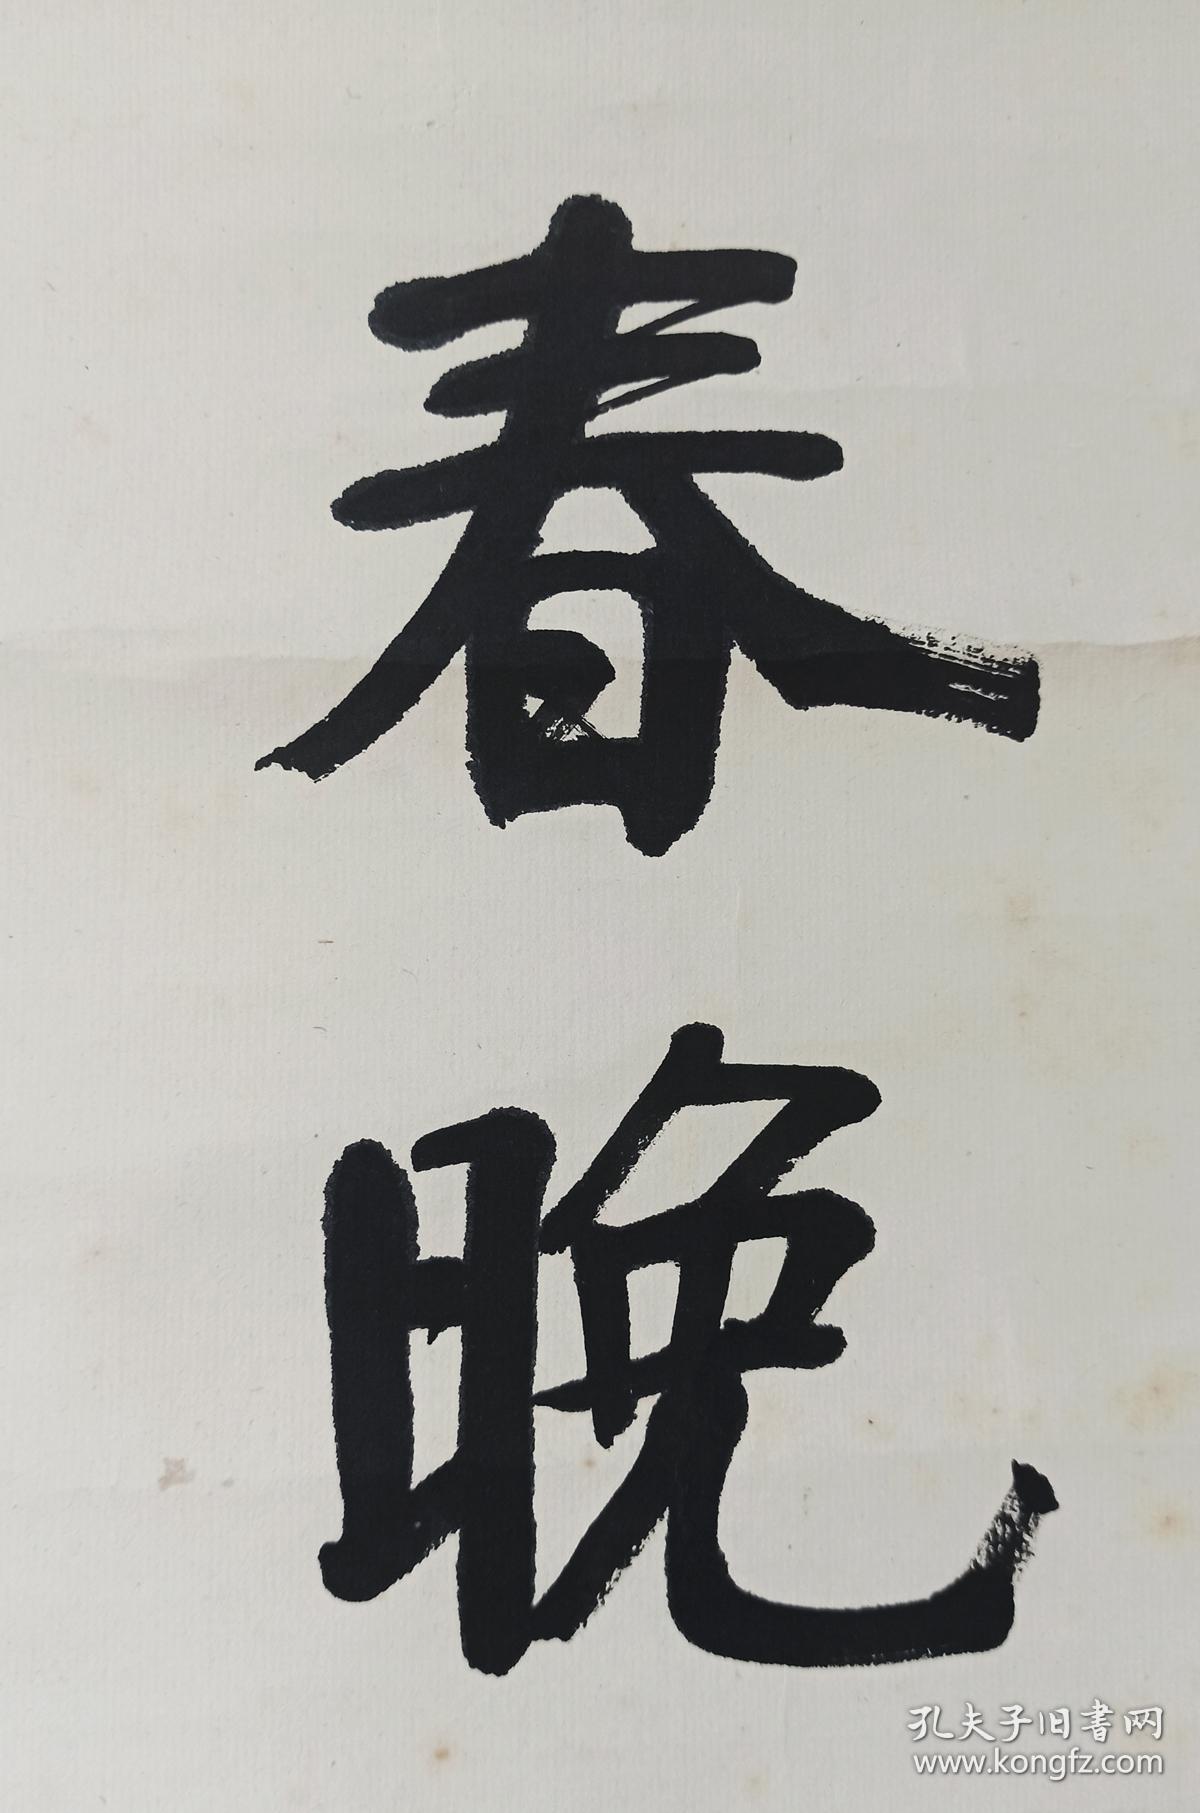 春晚
孔夫子旧書网
www.kongfz.com